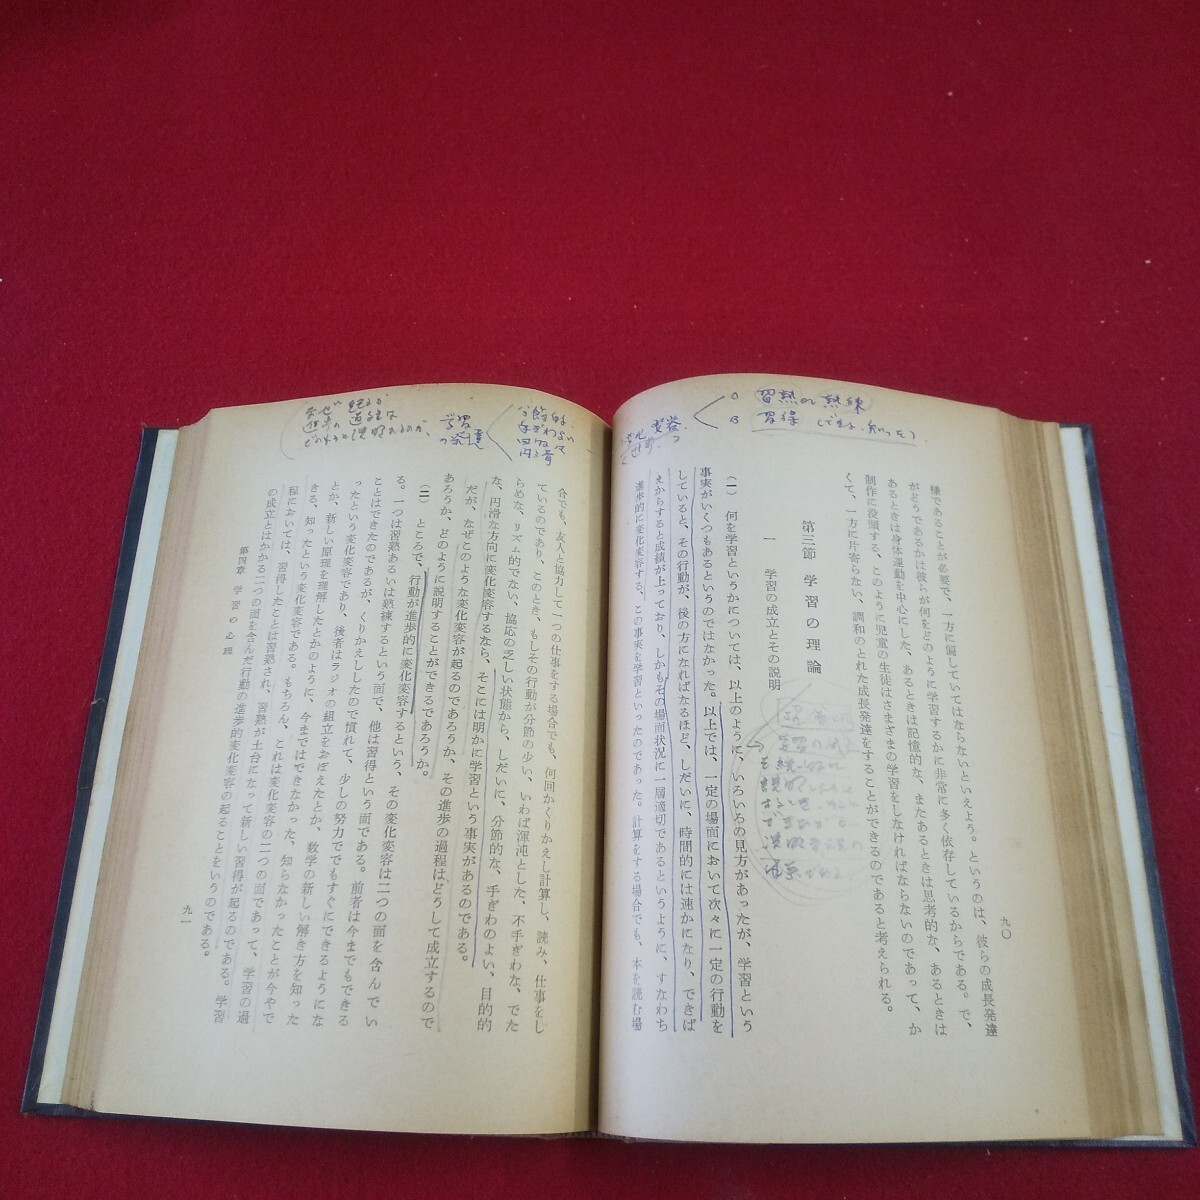 九〇
様であることが必要で、一方に偏していてはならないといえよう。というのは、彼らの成長発達
がどうであるかは彼らが何をどのように学習するかに非常に多く依存しているからである。で、
あるときは身体運動を中心にした、あるときは記憶的な、またあるときは思考的な、あるときは
制作に没頭する、このように児童の生徒はさまざまの学習をしなければならないのであって、か
くて、一方に片寄らない、調和のとれた成長発達をすることができるのであると考えられる。
第三節 学習の理論
一 学習の成立とその説明
(一) 何を学習というかについては、以上のように、いろいろの見方があったが、学習という
事実がいくつもあるというのではなかった。以上では、一定の場面において次々に一定の行動を
していると、その行動が、後の方になればなるほど、しだいに、時間的には速かになり、できば
えからすると成績が上っており、しかもその場面状況に一層適切であるというように、すなわち
進歩的に変化変容する、この事実を学習といったのであった。計算をする場合でも、本を読む場
習熟 熟練
習得
合でも、友人と協力して一つの仕事をする場合でも、何回かくりかえし計算し、読み、仕事をし
ているのであり、このとき、もしその行動が分節の少い、いわば渾沌とした、不手ぎわな、でた
らめな、リズム的でない、協応の乏しい状態から、しだいに、分節的な、手ぎわのよい、目的的
な、円滑な方向に変化変容するなら、そこには明かに学習という事実があるのである。
だが、なぜこのような変化変容が起るのであろうか、その進歩の過程は、どうして成立するので
あろうか、どのように説明することができるであろうか。
(二) ところで、行動が進歩的に変化変容するという、その変化変容は二つの面を含んでい
る。一つは習熟あるいは熟練するという面で、他は習得という面である。前者は今までもできる
ことはできたのであるが、くりかえししたので慣れて、少しの努力ででもすぐにできるようにな
ったという変化変容であり、後者はラジオの組立をおぼえたとか、数学の新しい解き方を知った
とか、新しい原理を理解したとかのように、今まではできなかった、知らなかったことが今やで
きる、知ったという変化変容である。もちろん、これは変化変容の二つの面であって、学習の過
程においては、習得したことは習熟され、習熟が土台になって新しい習得が起るのである。学習
の成立とはかかる二つの面を含んだ行動の進歩的変化変容の起ることをいうのである。
第四章 学習の心理
九一